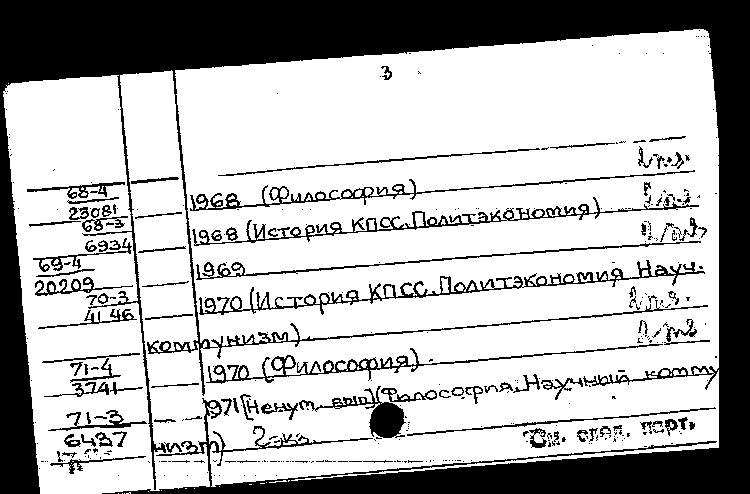 3
2 экз.
68-4
23081
1968 (Философия) 2 экз.
68-3
6934
1968 (История КПСС. Политэкономия) 2 экз.
69-4
20209
1969
70-3
4146
1970 (История КПСС. Политэкономия Науч.
коммунизм). 2 экз.
71-4
3741
1970 (Философия).
71-3
6437
1971 [Ненум. вып] (Философия. Научный комму
низм) 2 экз.
См. след. карт.